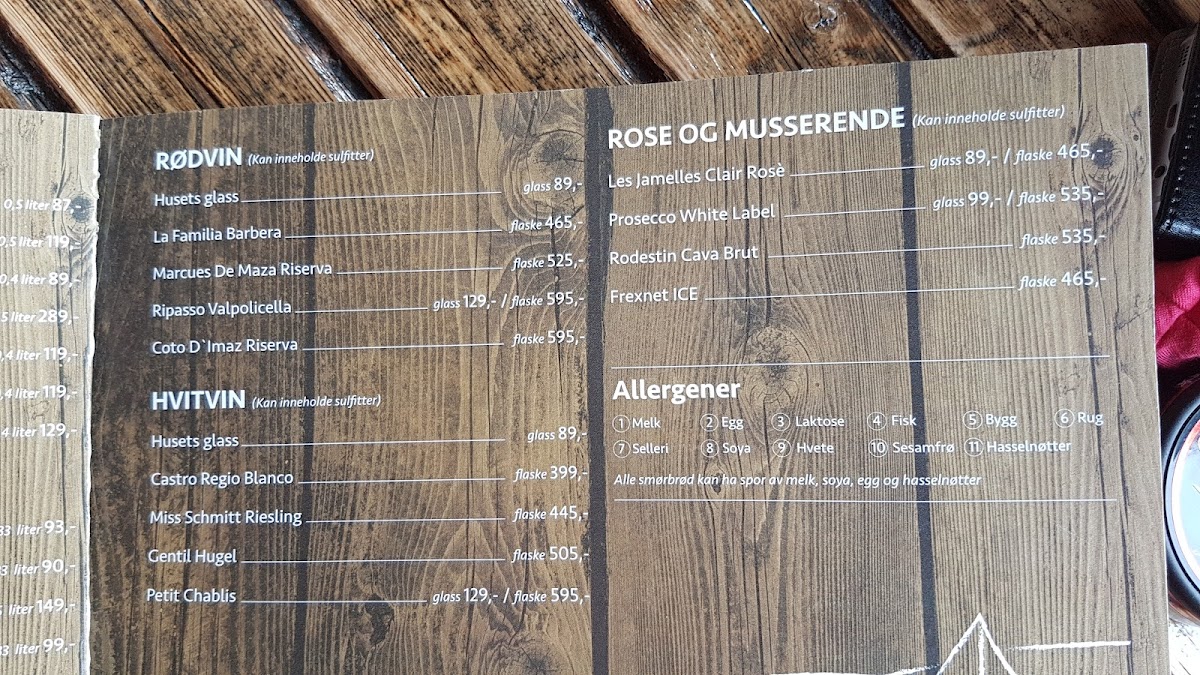 0,5 liter 87,-
0,5 liter 119,-
0,4 liter 89,-
5 liter 289,-
0,4 liter 119,-
0,4 liter 119,-
4 liter 129,-
33 liter 93,-
33 liter 90,-
liter 149,-
33 liter 99,-
RØDVIN (Kan inneholde sulfitter)
Husets glass glass 89,-
La Familia Barbera flaske 465,-
Marcues De Maza Riserva flaske 525,-
Ripasso Valpolicella glass 129,- / flaske 595,-
Coto D`Imaz Riserva flaske 595,-
HVITVIN (Kan inneholde sulfitter)
Husets glass glass 89,-
Castro Regio Blanco flaske 399,-
Miss Schmitt Riesling flaske 445,-
Gentil Hugel flaske 505,-
Petit Chablis glass 129,- / flaske 595,-
ROSE OG MUSSERENDE (Kan inneholde sulfitter)
Les Jamelles Clair Rosè glass 89,- / flaske 465,-
Prosecco White Label glass 99,- / flaske 535,-
Rodestin Cava Brut flaske 535,-
Frexnet ICE flaske 465,-
Allergener
1 Melk 2 Egg 3 Laktose 4 Fisk 5 Bygg 6 Rug
7 Selleri 8 Soya 9 Hvete 10 Sesamfrø 11 Hasselnøtter
Alle smørbrød kan ha spor av melk, soya, egg og hasselnøtter